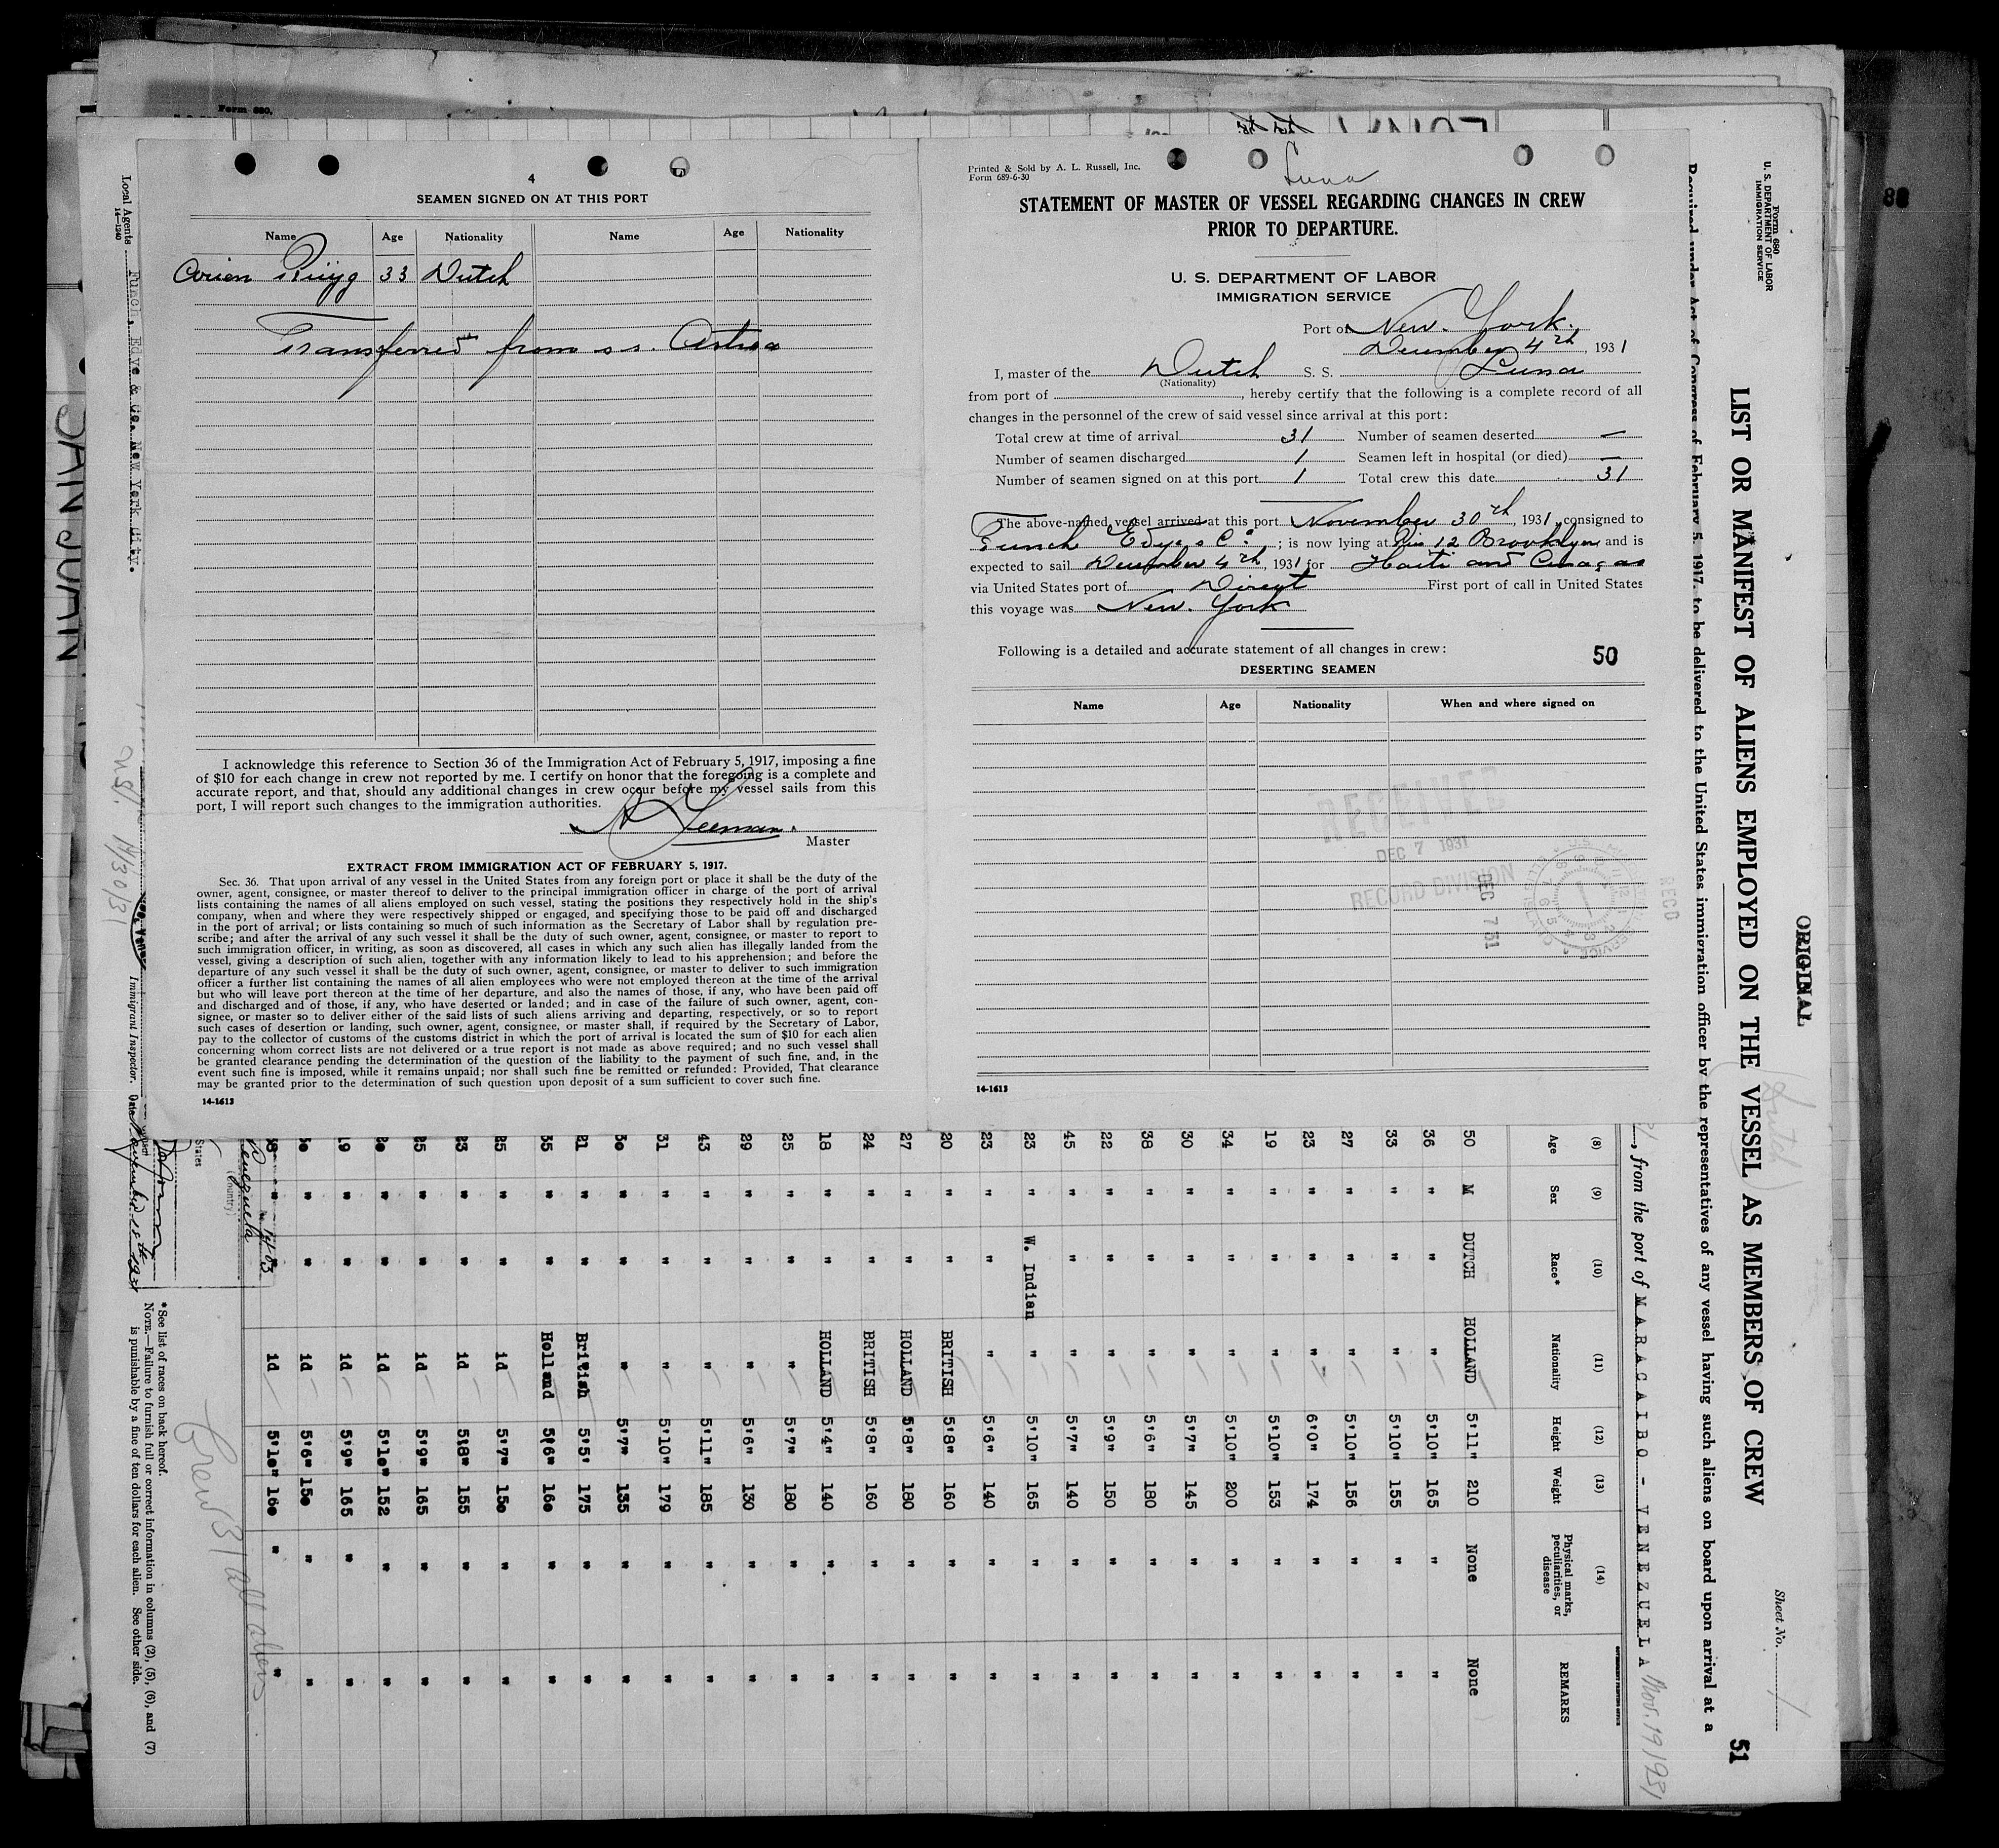 Form 680.
4
SEAMEN SIGNED ON AT THIS PORT
Name Age Nationality Name Age Nationality
33 Dutch
Transferred from s s. Astrea
I acknowledge this reference to Section 36 of the Immigration Act of February 5, 1917, imposing a fine
of $10 for each change in crew not reported by me. I certify on honor that the foregoing is a complete and
accurate report, and that, should any additional changes in crew occur before my vessel sails from this
port, I will report such changes to the immigration authorities.
Master
EXTRACT FROM IMMIGRATION ACT OF FEBRUARY 5, 1917.
Sec. 36. That upon arrival of any vessel in the United States from any foreign port or place it shall be the duty of the
owner, agent, consignee, or master thereof to deliver to the principal immigration officer in charge of the port of arrival
lists containing the names of all aliens employed on such vessel, stating the positions they respectively hold in the ship's
company, when and where they were respectively shipped or engaged, and specifying those to be paid off and discharged
in the port of arrival; or lists containing so much of such information as the Secretary of Labor shall by regulation pre-
scribe; and after the arrival of any such vessel it shall be the duty of such owner, agent, consignee, or master to report to
such immigration officer, in writing, as soon as discovered, all cases in which any such alien has illegally landed from the
vessel, giving a description of such alien, together with any information likely to lead to his apprehension; and before the
departure of any such vessel it shall be the duty of such owner, agent, consignee, or master to deliver to such immigration
officer a further list containing the names of all alien employees who were not employed thereon at the time of the arrival
but who will leave port thereon at the time of her departure, and also the names of those, if any, who have been paid off
and discharged and of those, if any, who have deserted or landed; and in case of the failure of such owner, agent, con-
signee, or master so to deliver either of the said lists of such aliens arriving and departing, respectively, or so to report
such cases of desertion or landing, such owner, agent, consignee, or master shall, if required by the Secretary of Labor,
pay to the collector of customs of the customs district in which the port of arrival is located the sum of $10 for each alien
concerning whom correct lists are not delivered or a true report is not made as above required; and no such vessel shall
be granted clearance pending the determination of the question of the liability to the payment of such fine, and, in the
event such fine is imposed, while it remains unpaid; nor shall such fine be remitted or refunded: Provided, That clearance
may be granted prior to the determination of such question upon deposit of a sum sufficient to cover such fine.
14-1613
Printed & Sold by A. L. Russell, Inc.
Form 689-6-30
Luna
STATEMENT OF MASTER OF VESSEL REGARDING CHANGES IN CREW
PRIOR TO DEPARTURE.
U. S. DEPARTMENT OF LABOR
IMMIGRATION SERVICE
Port of New. York.
December 4th, 1931
I, master of the Dutch S. S. Luna
(Nationality)
from port of , hereby certify that the following is a complete record of all
changes in the personnel of the crew of said vessel since arrival at this port:
Total crew at time of arrival 31 Number of seamen deserted —
Number of seamen discharged 1 Seamen left in hospital (or died) —
Number of seamen signed on at this port 1 Total crew this date 31
The above-named vessel arrived at this port November 30th, 1931, consigned to
Funch Edye & Co; is now lying at Pier 12 Brooklyn and is
expected to sail December 4th, 1931 for Haiti and Curaçao
via United States port of Direct First port of call in United States
this voyage was New. York
Following is a detailed and accurate statement of all changes in crew:
50
DESERTING SEAMEN
Name Age Nationality When and where signed on
RECEIVED
DEC 7 1931
RECORD DIVISION
DEC 7 31
RECD
14-1613
SAN JUAN
Local Agents Funch, Edye & Co. New York City.
14-1240
Immigrant Inspector.
88
Form 680
U. S. DEPARTMENT OF LABOR
IMMIGRATION SERVICE
ORIGINAL
Sheet No. 1
51
LIST OR MANIFEST OF ALIENS EMPLOYED ON THE VESSEL AS MEMBERS OF CREW
Required under Act of Congress of February 5, 1917, to be delivered to the United States immigration officer by the representatives of any vessel having such aliens on board upon arrival at a
, from the port of MARACAIBO - VENEZUELA Nov. 19/1931
(8) (9) (10) (11) (12) (13) (14)
Age Sex Race* Nationality Height Weight Physical marks, peculiarities, or disease REMARKS
50 M DUTCH HOLLAND 5'11" 210 None None
36 " " " 5'10" 165 " "
33 " " " 5'10" 155 " "
27 " " " 5'10" 156 " "
23 " " " 6'0" 174 " "
19 " " " 5'10" 153 " "
34 " " " 5'10" 200 " "
30 " " " 5'7" 145 " "
38 " " " 5'6" 180 " "
22 " " " 5'9" 150 " "
45 " " " 5'7" 140 " "
23 " W. Indian " 5'10" 165 " "
23 " " " 5'6" 140 " "
20 " " BRITISH 5'8" 160 " "
27 " " HOLLAND 5'8" 180 " "
24 " " BRITISH 5'8" 160 " "
18 " " HOLLAND 5'4" 140 " "
25 " " " 5'7" 180 " "
29 " " " 5'6" 130 " "
43 " " " 5'11" 185 " "
31 " " " 5'10" 179 " "
30 " " " 5'7" 135 " "
21 " " British 5'5' 175 " "
35 " " Holland 5'6" 160 " "
25 " " id 5'7" 150 " "
23 " " id 5'8" 155 " "
25 " " id 5'9" 165 " "
" " id 5'10" 152 " "
19 " " id 5'9" 165 " "
" " id 5'6" 150 " "
" id 5'10" 160 " "
Venezuela
(Country)
States
Crew 31 all aliens
*See list of races on back hereof.
NOTE.—Failure to furnish full or correct information in columns (2), (5), (6), and (7)
is punishable by a fine of ten dollars for each alien. See other side.